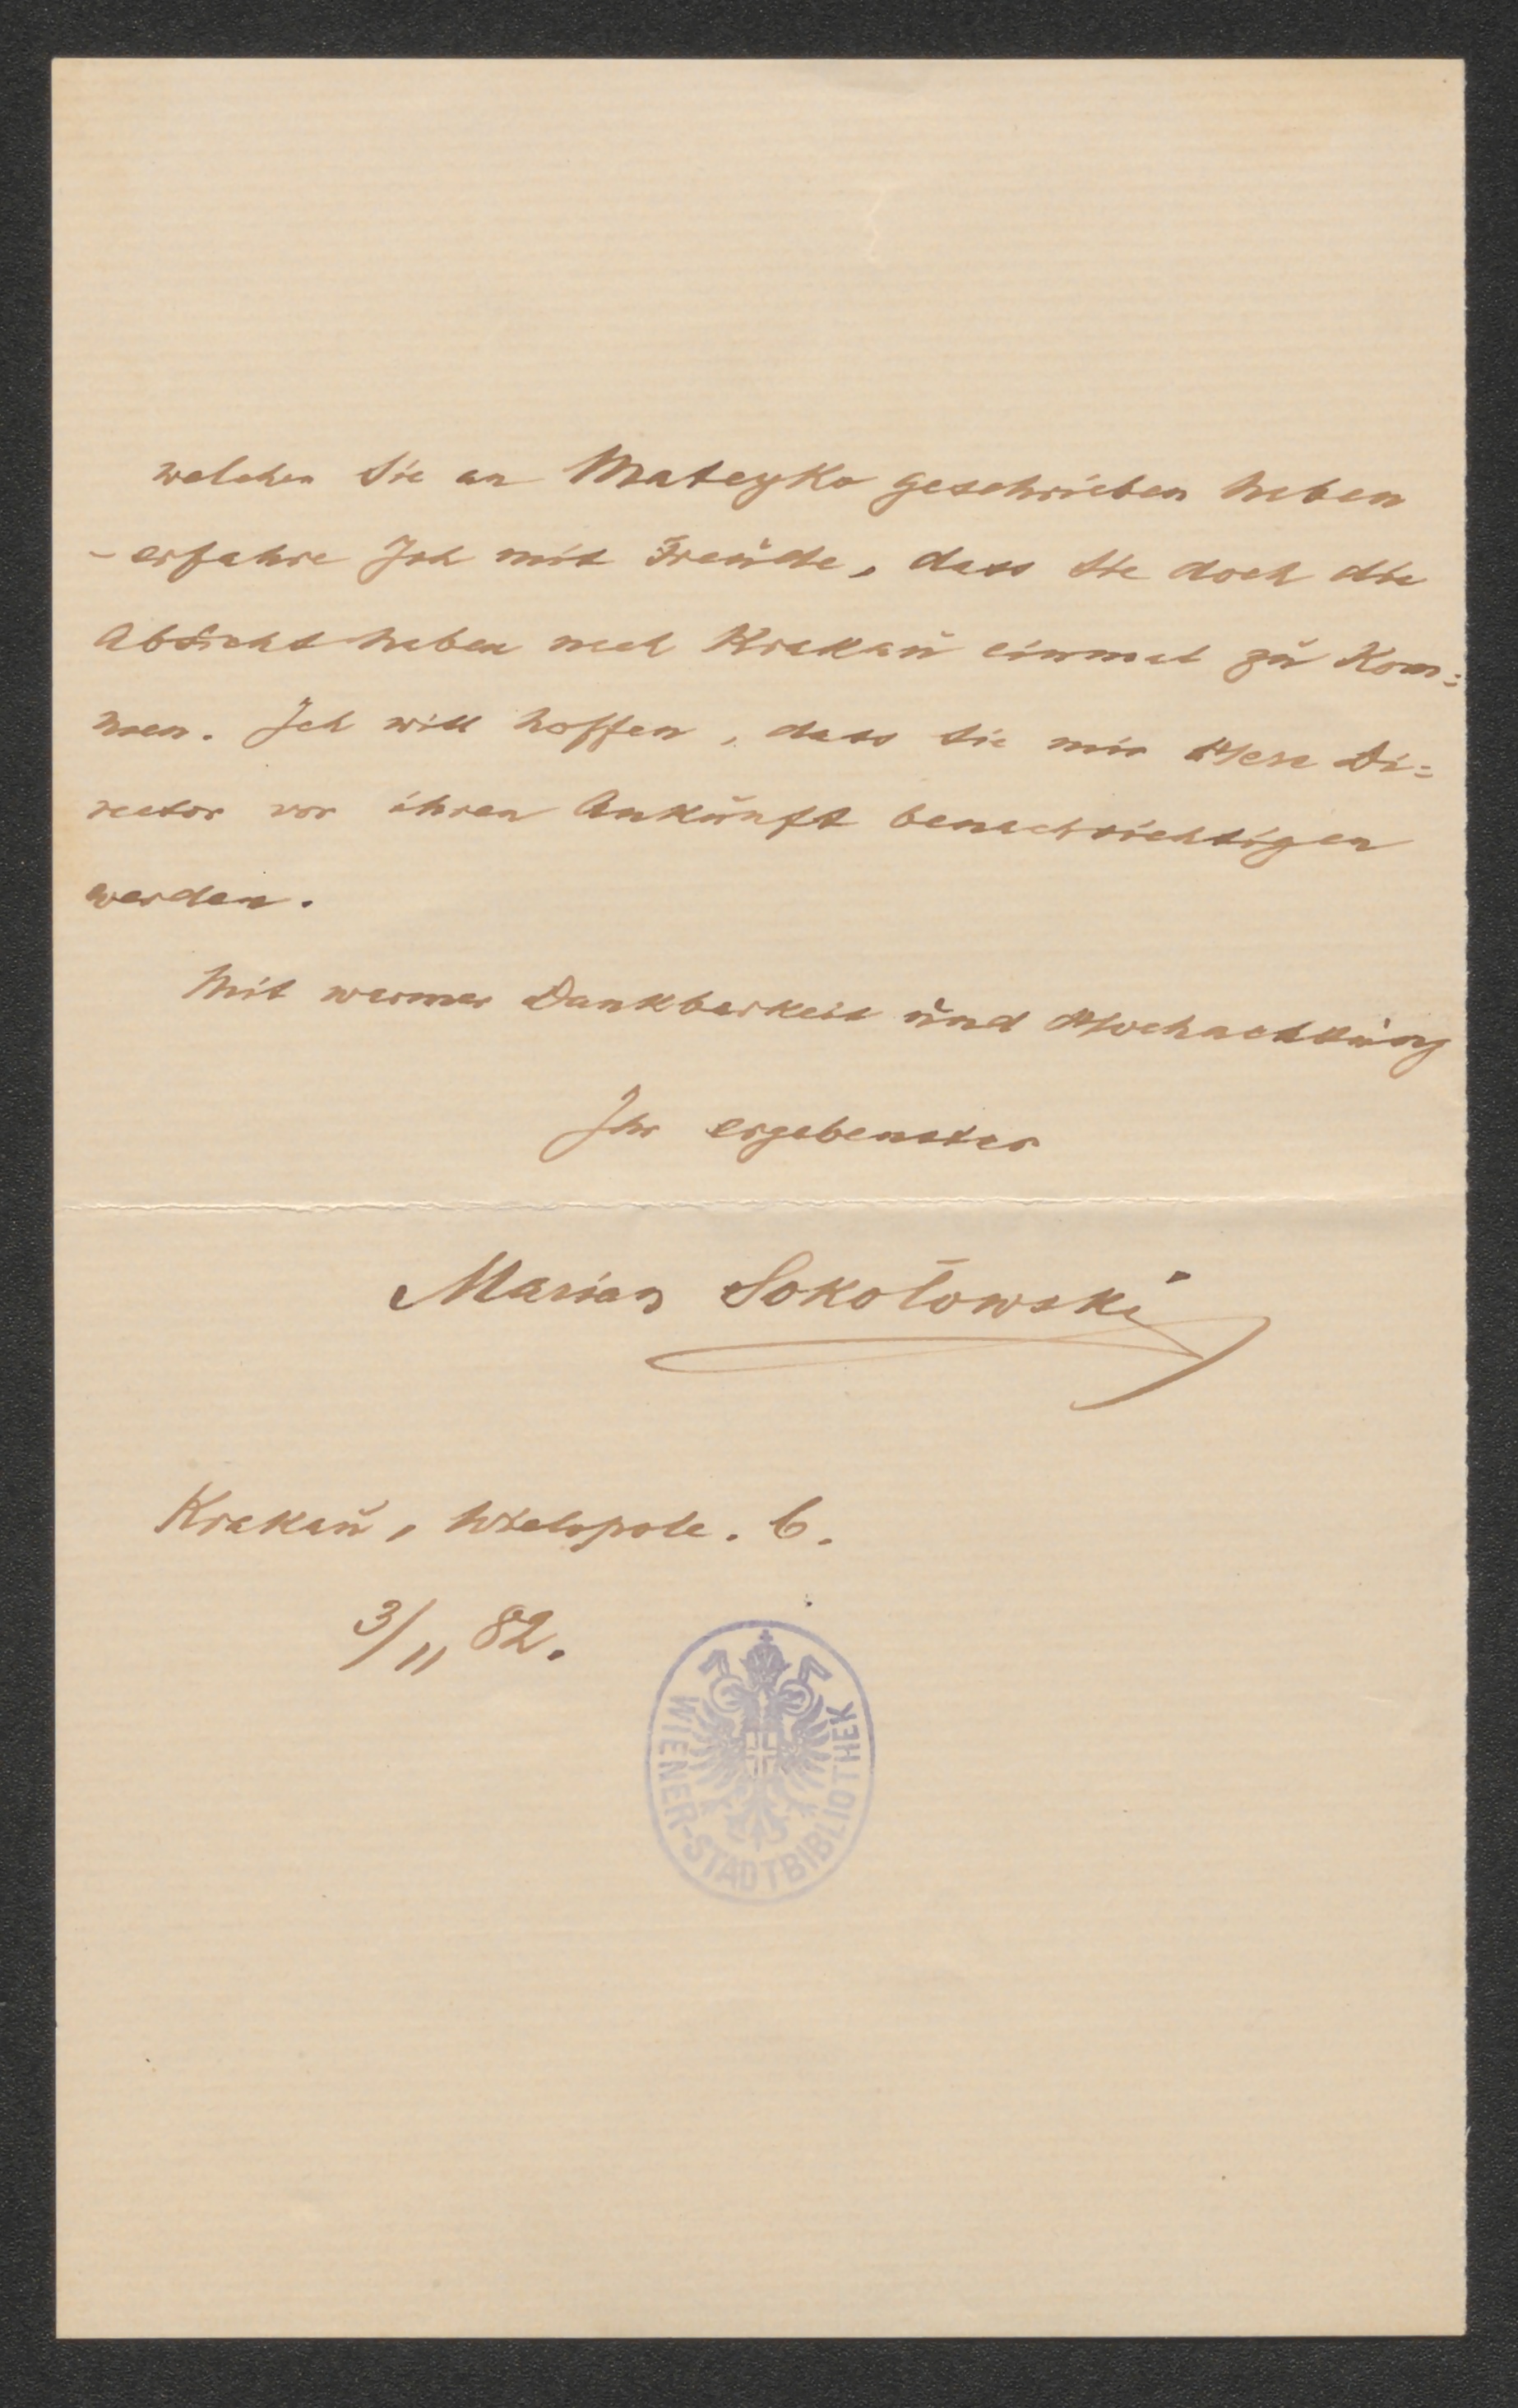 welchen Sie an Mateyko geschrieben haben
- erfahre Ich mit Freude, dass Sie doch die
Absicht haben nach Krakau einmal zu Kom=
men. Ich will hoffen, dass Sie mir Herr Di=
rector vor ihren Ankunft benachrichtigen
werden.
Mit warmer Dankbarkeit und Hochachtung
Ihr ergebenster
Marian Sokołowski
Krakau, Wielopole. 6.
3/11 82.
WIENER-STADTBIBLIOTHEK